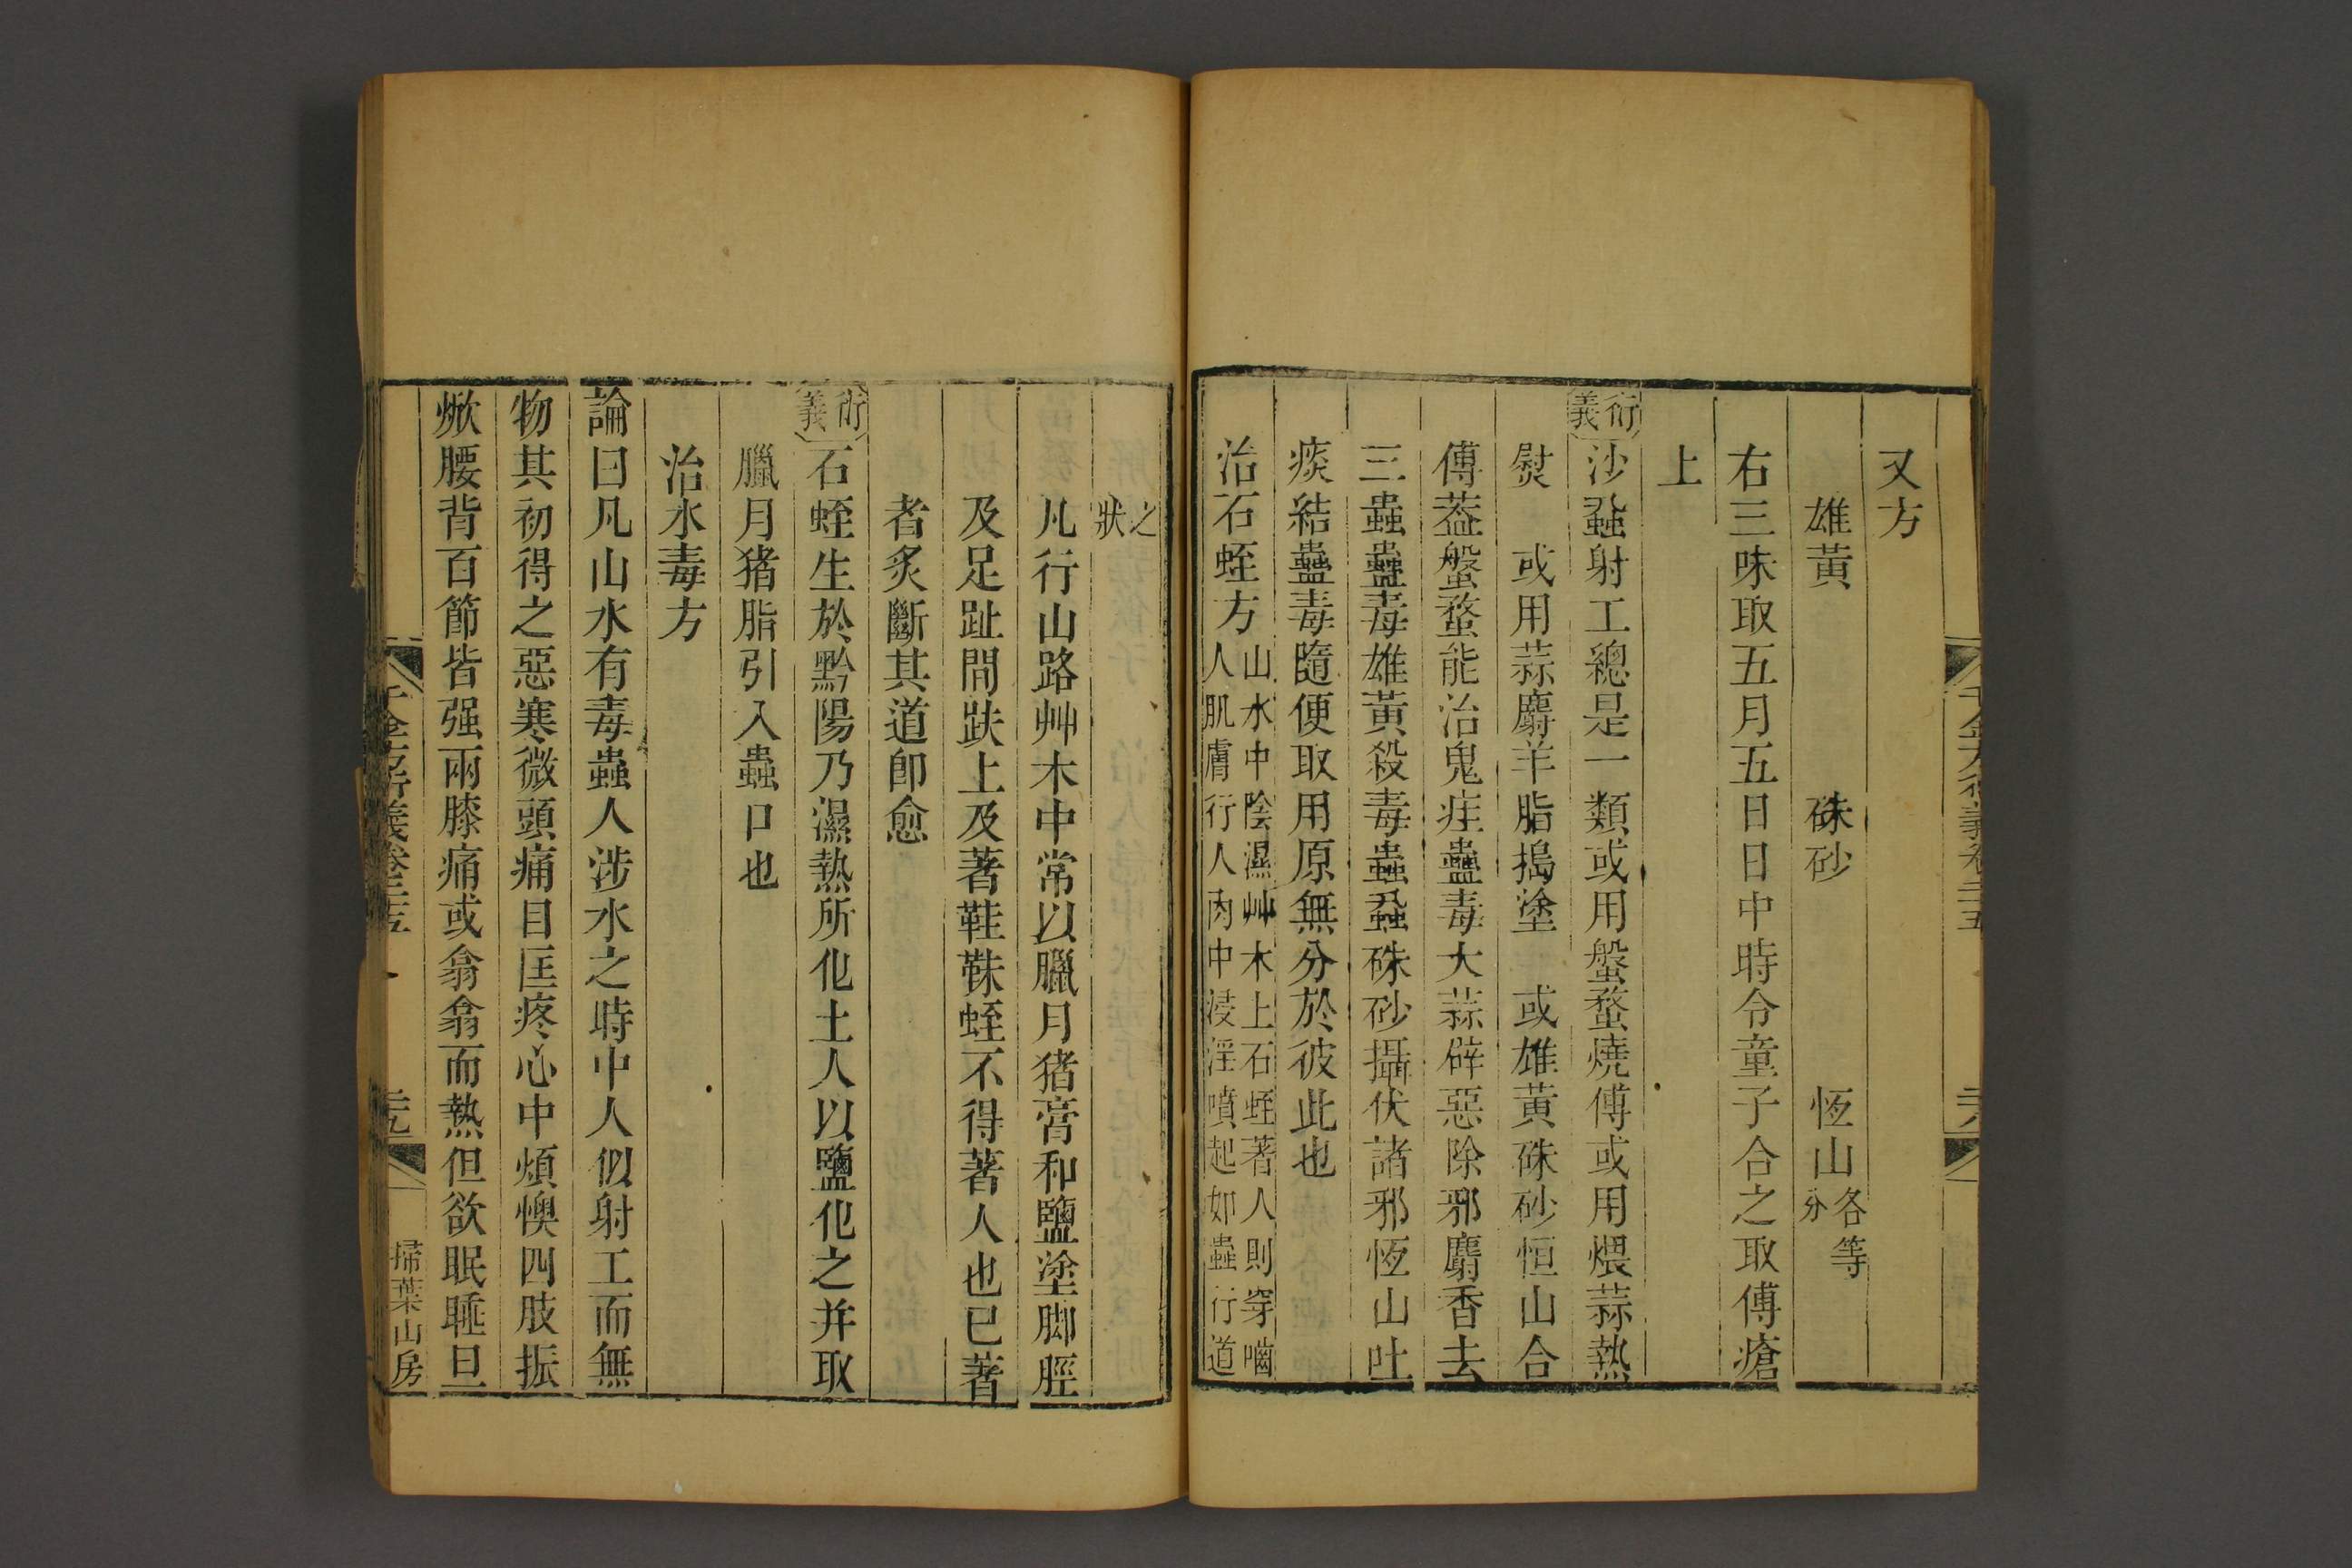 千金方衍義卷二十五
二十八
又方
雄黃 硃砂 恆山各等分
右三味取五月五日日中時令童子合之取傅瘡
上
衍義 沙蝨射工總是一類或用盤蝥燒傅或用煨蒜熱
熨 或用蒜麝羊脂搗塗 或雄黃硃砂恒山合
傅葢盤蝥能治鬼疰蠱毒大蒜辟惡除邪麝香去
三蟲蠱毒雄黃殺毒蟲蝨硃砂攝伏諸邪恆山吐
痰結蠱毒隨便取用原無分於彼此也
治石蛭方 山水中陰濕艸木上石蛭著人則穿嚙
人肌膚行人肉中浸淫噴起如蟲行道
之
狀
凡行山路艸木中常以臘月猪膏和鹽塗脚脛
及足趾間趺上及著鞋靺蛭不得著人也已著
者炙斷其道卽愈
衍義 石蛭生於黔陽乃濕熱所化土人以鹽化之并取
臘月猪脂引入蟲口也
治水毒方
論曰凡山水有毒蟲人涉水之時中人似射工而無
物其初得之惡寒微頭痛目匡疼心中煩懊四肢振
焮腰背百節皆强兩膝痛或翕翕而熱但欲眠睡旦
千金方衍義卷二十五
二十九
掃葉山房